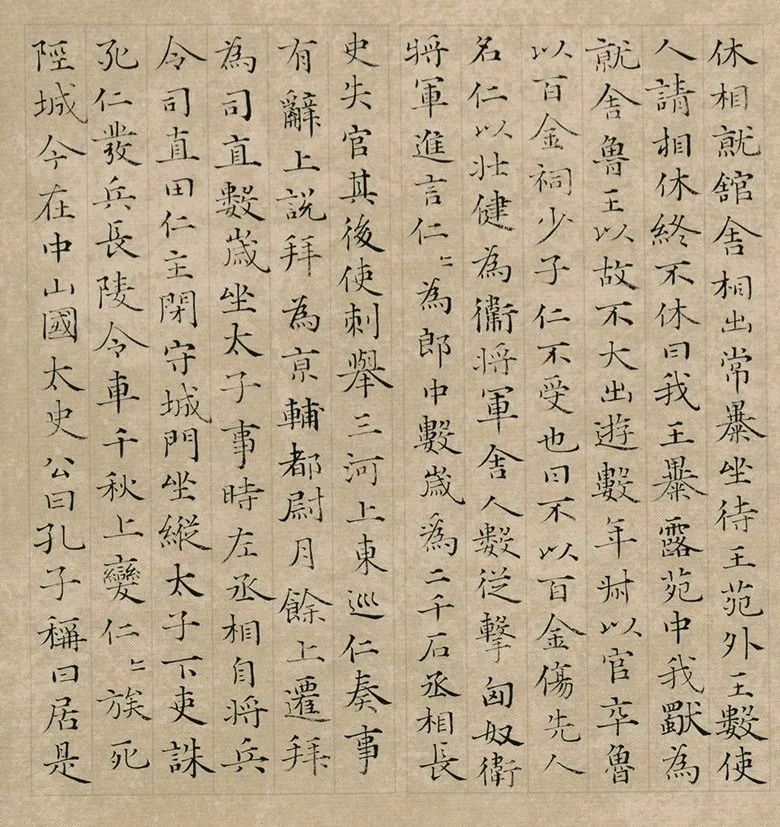 休相就舘舍相出常暴坐待王苑外王數使
人請相休終不休曰我王暴露苑中我獨為
就舍魯王以故不大出遊數年尌以官卒魯
以百金祠少子仁不受也曰不以百金傷先人
名仁以壯健為衛將軍舍人數從擊匈奴衛
將軍進言仁〻為郎中數歲為二千石丞相長
史失官其後使刺舉三河上東巡仁奏事
有辭上說拜為京輔都尉月餘上遷拜
為司直數歲坐太子事時左丞相自將兵
令司直田仁主閉守城門坐縱太子下吏誅
死仁發兵長陵令車千秋上變仁〻族死
陘城今在中山國太史公曰孔子稱曰居是